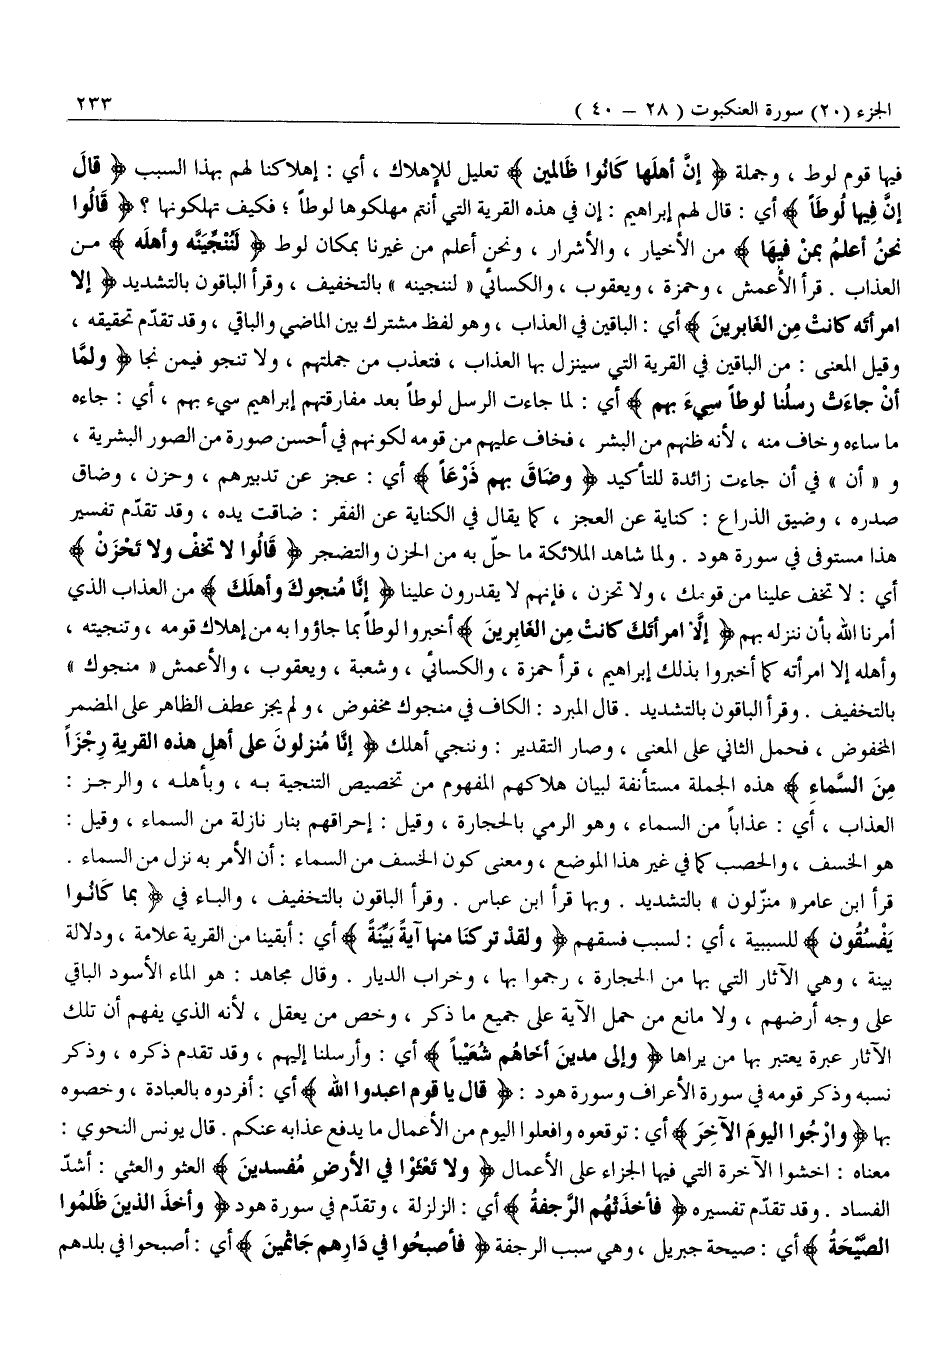 الجزء (٢٠) سورة العنكبوت ( ٢٨ – ٤٠ ) ٢٣٣
فيها قوم لوط ، وجملة ﴿ إنَّ أهلَها كَانُوا ظَالمين ﴾ تعليل للإهلاك ، أي : إهلاكنا لهم بهذا السبب ﴿ قالَ
إنَّ فيها لُوطَاً ﴾ أي : قال لهم إبراهيم : إن في هذه القرية التي أنتم مهلكوها لوطاً ؛ فكيف تهلكونها ؟ ﴿ قَالُوا
نحنُ أعلمُ بمنْ فيهَا ﴾ من الأخيار ، والأشرار ، ونحن أعلم من غيرنا بمكان لوط ﴿ لَنُنْجِّيَنَّه وأهلَه ﴾ من
العذاب . قرأ الأعمش ، وحمزة ، ويعقوب ، والكسائي « لننجينه » بالتخفيف ، وقرأ الباقون بالتشديد ﴿ إلا
امرأتَه كانتْ مِن الغَابرينَ ﴾ أي : الباقين في العذاب ، وهو لفظ مشترك بين الماضي والباقي ، وقد تقدّم تحقيقه ،
وقيل المعنى : من الباقين في القرية التي سينزل بها العذاب ، فتعذب من جملتهم ، ولا تنجو فيمن نجا ﴿ ولمَّا
أنْ جاءَتْ رسلُنا لوطاً سِيءَ بهم ﴾ أي : لما جاءت الرسل لوطاً بعد مفارقتهم إبراهيم سيء بهم ، أي : جاءه
ما ساءه وخاف منه ، لأنه ظنهم من البشر ، فخاف عليهم من قومه لكونهم في أحسن صورة من الصور البشرية ،
و « أن » في أن جاءت زائدة للتأكيد ﴿ وضَاقَ بهم ذَرْعَاً ﴾ أي : عجز عن تدبيرهم ، وحزن ، وضاق
صدره ، وضيق الذراع : كناية عن العجز ، كما يقال في الكناية عن الفقر : ضاقت يده ، وقد تقدّم تفسير
هذا مستوفى في سورة هود . ولما شاهد الملائكة ما حلّ به من الحزن والتضجر ﴿ قَالُوا لا تخفْ ولا تَحْزَنْ ﴾
أي : لا تخف علينا من قومك ، ولا تحزن ، فإنهم لا يقدرون علينا ﴿ إنَّا مُنجوكَ وأهلَكَ ﴾ من العذاب الذي
أمرنا الله بأن ننزله بهم ﴿ إلَّا امرأتَكَ كانتْ مِن الغَابِرينَ ﴾ أخبروا لوطاً بما جاؤوا به من إهلاك قومه ، وتنجيته ،
وأهله إلا امرأته كما أخبروا بذلك إبراهيم ، قرأ حمزة ، والكسائي ، وشعبة ، ويعقوب ، والأعمش « منجوك »
بالتخفيف . وقرأ الباقون بالتشديد . قال المبرد : الكاف في منجوك مخفوض ، ولم يجز عطف الظاهر على المضمر
المخفوض ، فحمل الثاني على المعنى ، وصار التقدير : وننجي أهلك ﴿ إنَّا مُنزلونَ على أهلِ هذه القريةِ رِجْزَاً
مِنَ السَّماءِ ﴾ هذه الجملة مستأنفة لبيان هلاكهم المفهوم من تخصيص التنجية به ، وبأهله ، والرجز :
العذاب ، أي : عذاباً من السماء ، وهو الرمي بالحجارة ، وقيل : إحراقهم بنار نازلة من السماء ، وقيل :
هو الخسف ، والحصب كما في غير هذا الموضع ، ومعنى كون الخسف من السماء : أن الأمر به نزل من السماء .
قرأ ابن عامر« منزّلون » بالتشديد . وبها قرأ ابن عباس . وقرأ الباقون بالتخفيف ، والباء في ﴿ بما كَانُوا
يَفْسُقُون ﴾ للسببية ، أي : لسبب فسقهم ﴿ ولقدْ تركنَا منها آيةً بَيِّنةً ﴾ أي : أبقينا من القرية علامة ، ودلالة
بينة ، وهي الآثار التي بها من الحجارة ، رجموا بها ، وخراب الديار . وقال مجاهد : هو الماء الأسود الباقي
على وجه أرضهم ، ولا مانع من حمل الآية على جميع ما ذكر ، وخص من يعقل ، لأنه الذي يفهم أن تلك
الآثار عبرة يعتبر بها من يراها ﴿ وإلى مدينَ أخَاهُم شُعَيْباً ﴾ أي : وأرسلنا إليهم ، وقد تقدم ذكره ، وذكر
نسبه وذكر قومه في سورة الأعراف وسورة هود : ﴿ قال يا قوم اعبدوا الله ﴾ أي : أفردوه بالعبادة ، وخصوه
بها ﴿ وارْجُوا اليومَ الآخِرَ ﴾ أي : توقعوه وافعلوا اليوم من الأعمال ما يدفع عذابه عنكم . قال يونس النحوي :
معناه : اخشوا الآخرة التي فيها الجزاء على الأعمال ﴿ ولا تَعْثَوْا في الأرضِ مُفسدينَ ﴾ العثو والعثي : أشدّ
الفساد . وقد تقدّم تفسيره ﴿ فأخذَتْهُم الرَّجفةُ ﴾ أي : الزلزلة ، وتقدّم في سورة هود ﴿ وأخذَ الذينَ ظَلمُوا
الصَّيْحَةُ ﴾ أي : صيحة جبريل ، وهي سبب الرجفة ﴿ فأصبحُوا في دَارِهم جَاثمينَ ﴾ أي : أصبحوا في بلدهم